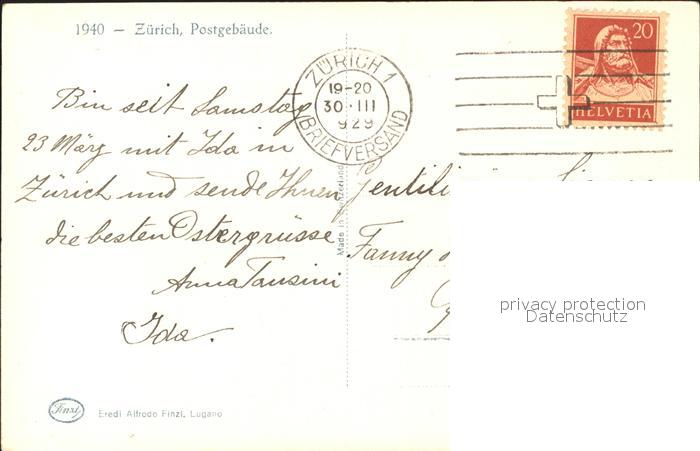 1940 – Zürich, Postgebäude.
20
HELVETIA
ZÜRICH 1
19-20
30·III
929
BRIEFVERSAND
Bin seit Samstag
23 März mit Ida in
Zürich und sende Ihnen
die besten Ostergrüsse
Anna Tansini
Ida.
Made in Switzerland
Gentili
Fanny
privacy protection
Datenschutz
Finzi
Eredi Alfredo Finzi, Lugano